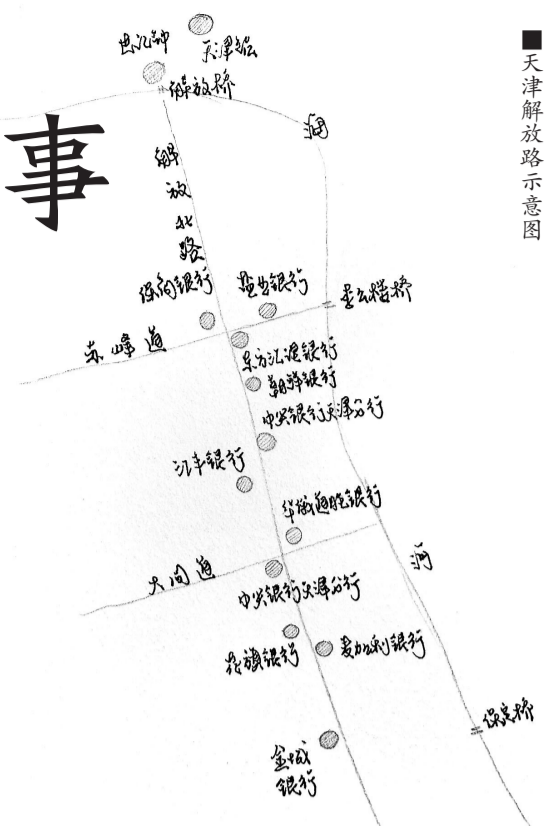 ■天津解放路示意图
事
世纪钟
天津站
解放桥
河
解放北路
保商银行
盐业银行
赤峰道
东方汇理银行
朝鲜银行
中央银行天津分行
汇丰银行
华俄道胜银行
河
大同道
中央银行天津分行
花旗银行
麦加利银行
保定桥
金城
银行